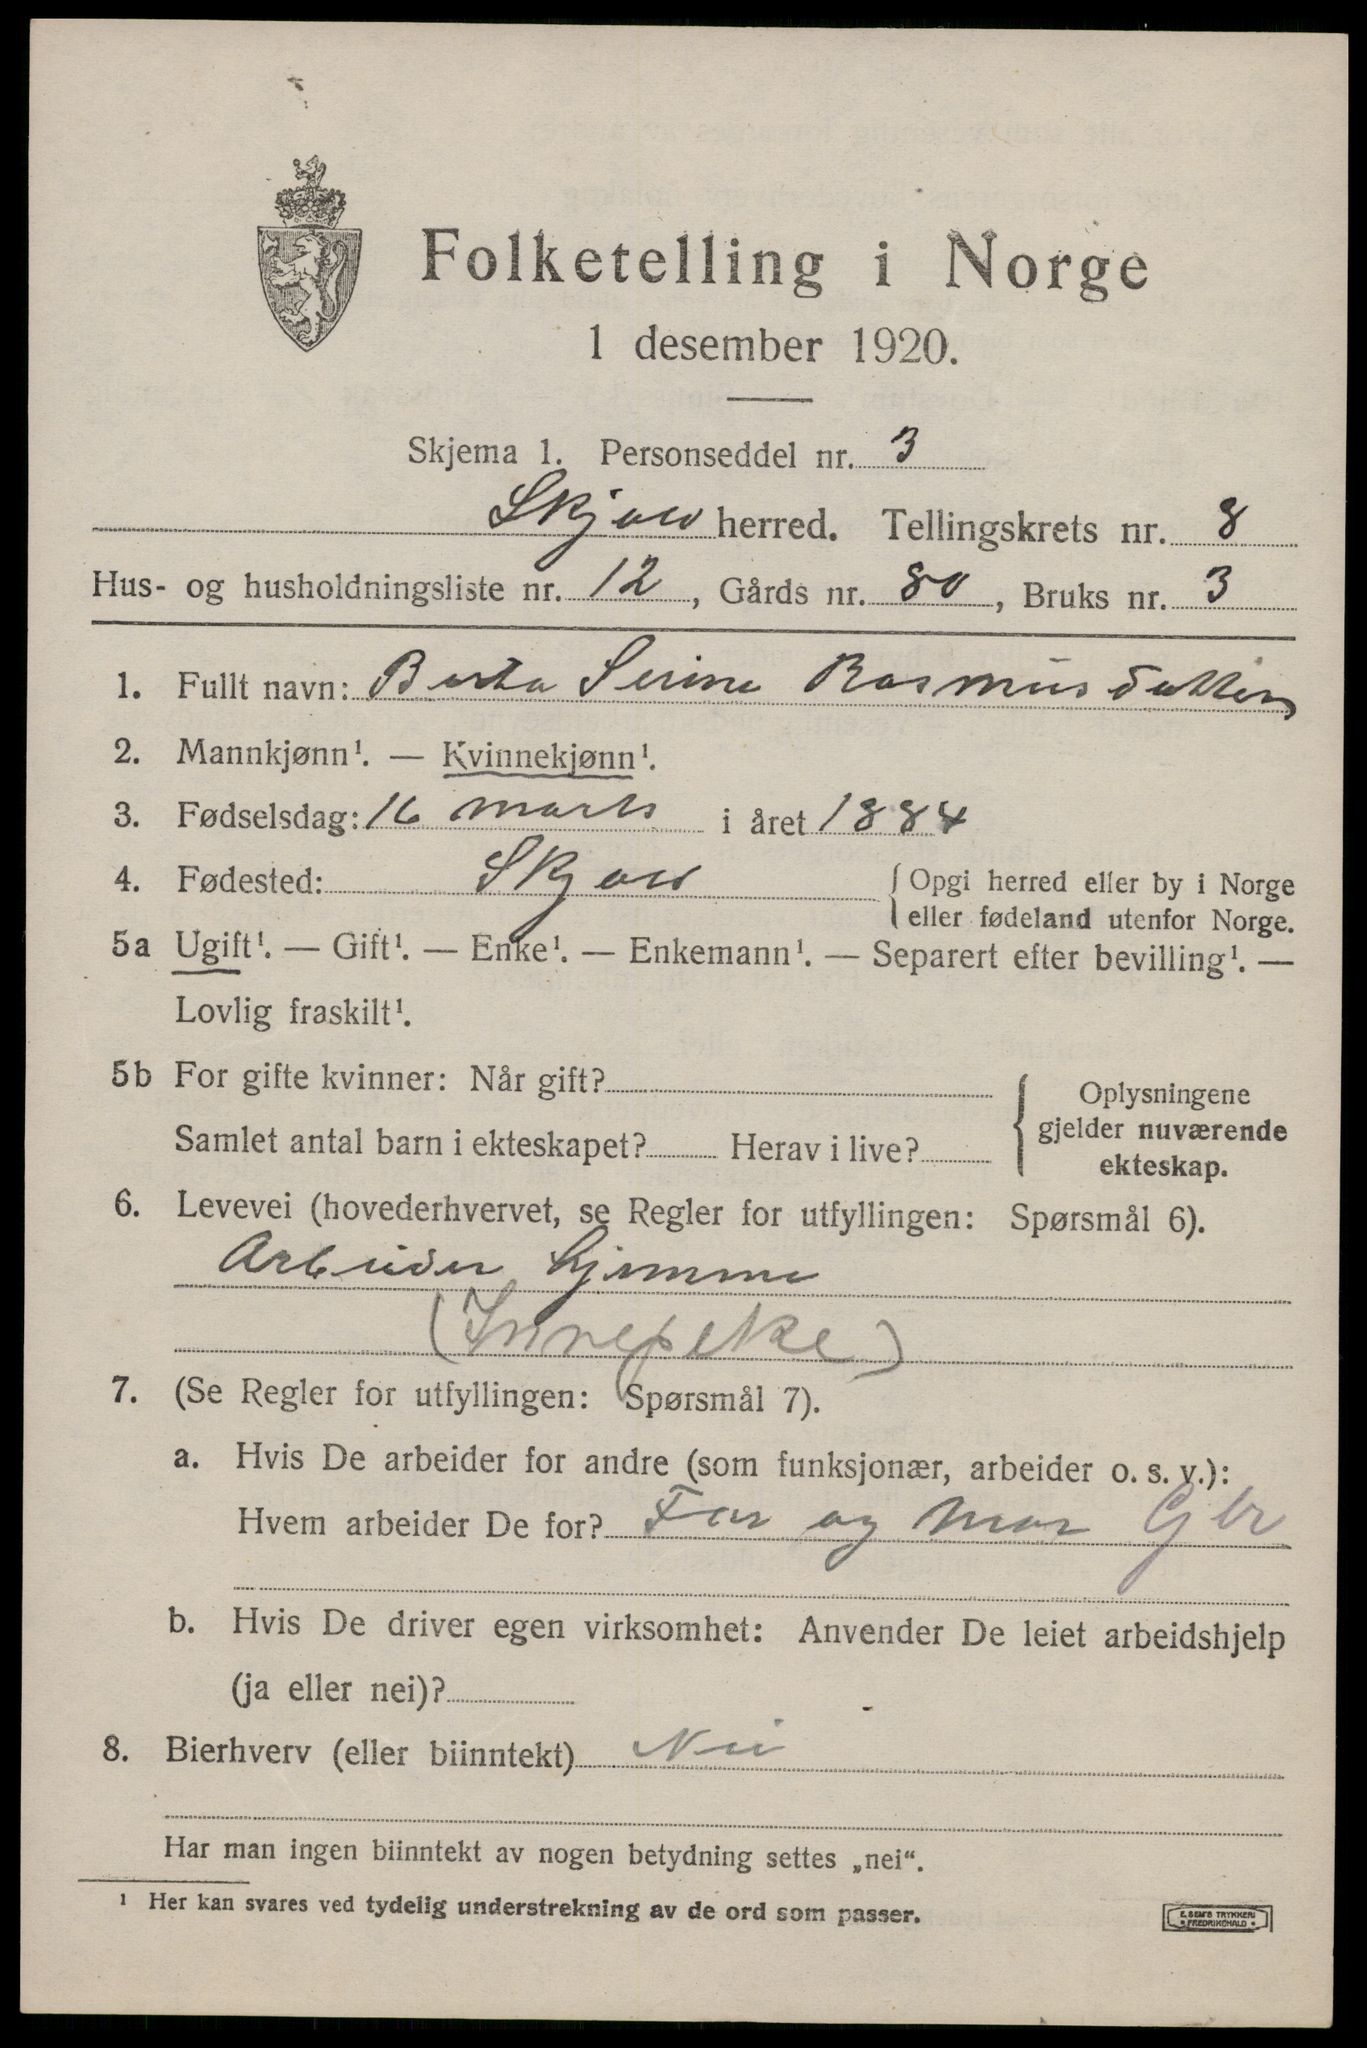 Folketelling i Norge
1 desember 1920.
Skjema 1. Personseddel nr. 3
Skjold herred. Tellingskrets nr. 8
Hus- og husholdningsliste nr. 12, Gårds nr. 80, Bruks nr. 3
1. Fullt navn: Berta Serine Rasmusdatter
2. Mannkjønn¹. — Kvinnekjønn¹.
3. Fødselsdag: 16 marts i året 1884
4. Fødested: Skjold { Opgi herred eller by i Norge
eller fødeland utenfor Norge.
5a Ugift¹. — Gift¹. — Enke¹. — Enkemann¹. — Separert efter bevilling¹. —
Lovlig fraskilt¹.
5b For gifte kvinner: Når gift?
Samlet antal barn i ekteskapet? Herav i live?
{ Oplysningene
gjelder nuværende
ekteskap.
6. Levevei (hovederhvervet, se Regler for utfyllingen: Spørsmål 6).
Arbeider hjemme
(Innepike)
7. (Se Regler for utfyllingen: Spørsmål 7).
a. Hvis De arbeider for andre (som funksjonær, arbeider o. s. v.):
Hvem arbeider De for? Far og Mor Gbr
b. Hvis De driver egen virksomhet: Anvender De leiet arbeidshjelp
(ja eller nei)?
8. Bierhverv (eller biinntekt) Nei
Har man ingen biinntekt av nogen betydning settes „nei“.
¹ Her kan svares ved tydelig understrekning av de ord som passer.
E. SEM'S TRYKKERI
• FREDRIKSHALD •